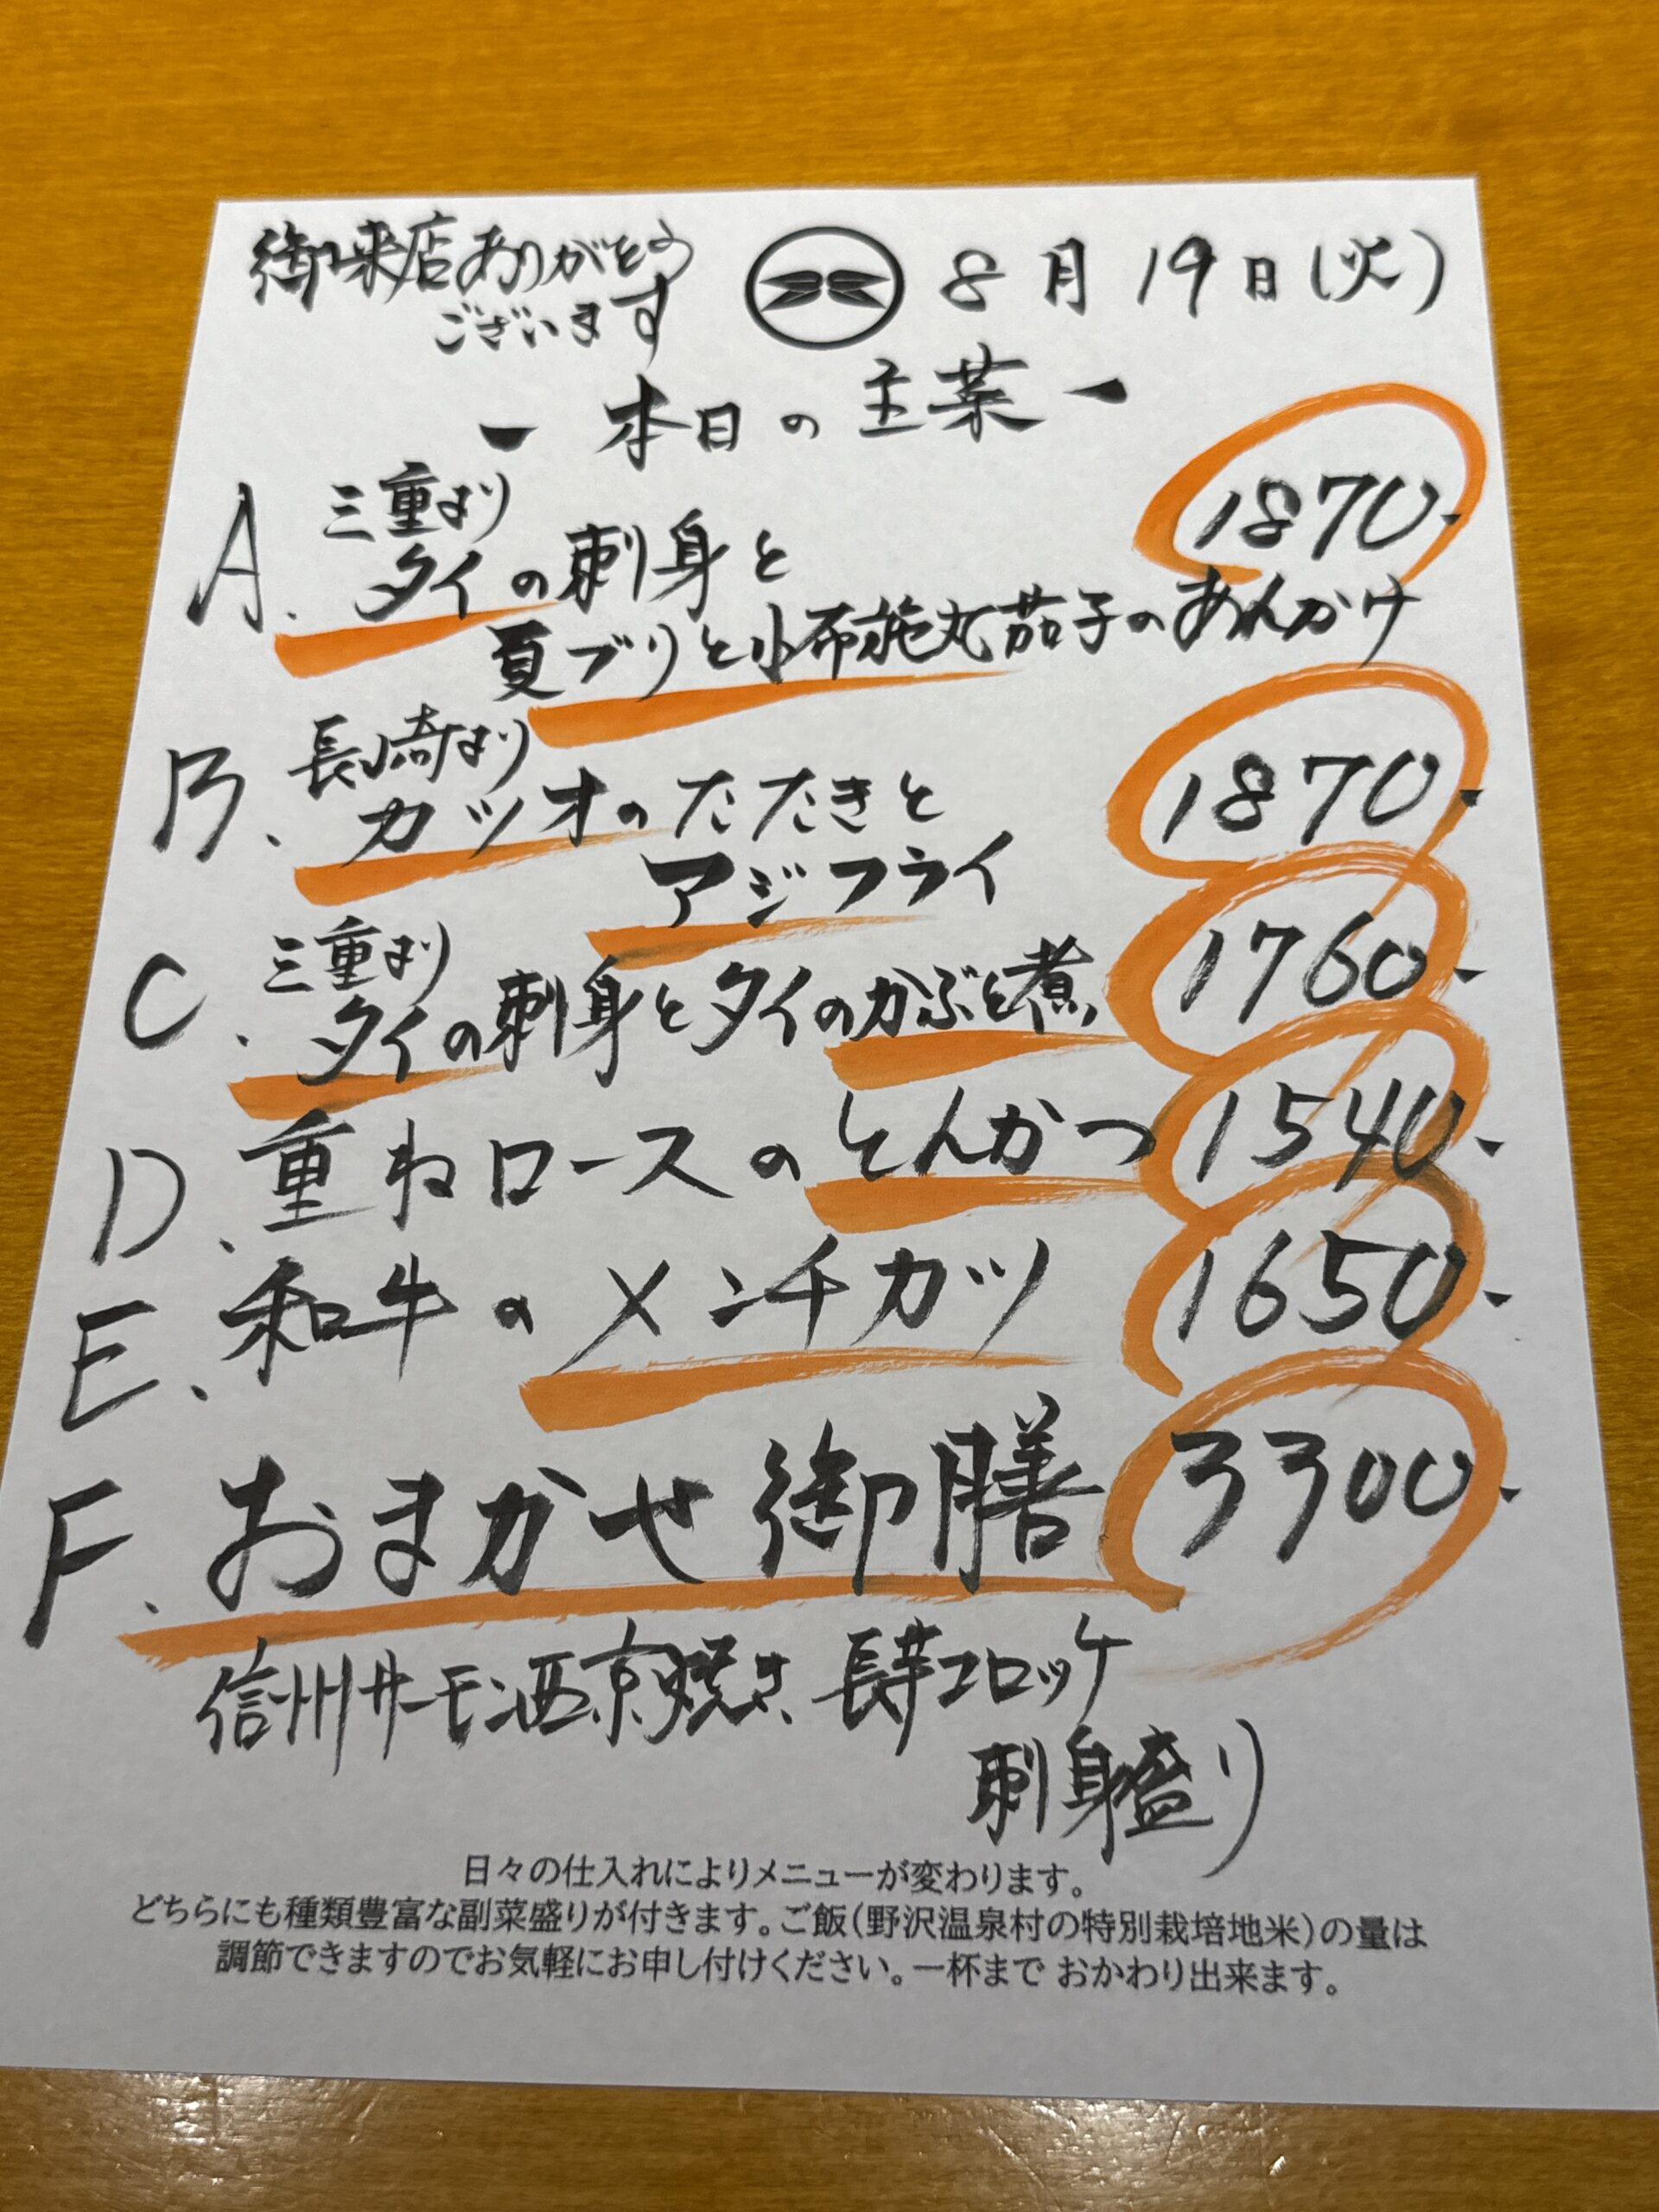 御来店ありがとう
ございます
8月19日(火)
ー 本日の主菜 ー
A. 三重より
タイの刺身と
夏ブリと小布施丸茄子のあんかけ
1870.-
B. 長崎より
カツオのたたきと
アジフライ
1870.-
C. 三重より
タイの刺身とタイのかぶと煮
1760.-
D. 重ねロースのとんかつ 1540.-
E. 和牛のメンチカツ 1650.-
F. おまかせ御膳 3300.-
信州サーモン西京焼き、長芋コロッケ
刺身盛り
日々の仕入れによりメニューが変わります。
どちらにも種類豊富な副菜盛りが付きます。ご飯(野沢温泉村の特別栽培地米)の量は
調節できますのでお気軽にお申し付けください。一杯まで おかわり出来ます。